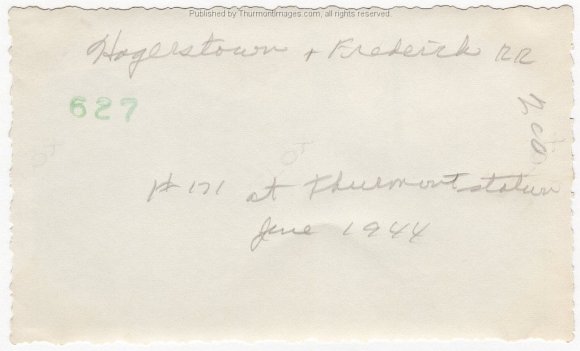 Published by Thurmontimages.com, all rights reserved.
Hagerstown + Frederick RR
627
# 171 at Thurmont station
June 1944